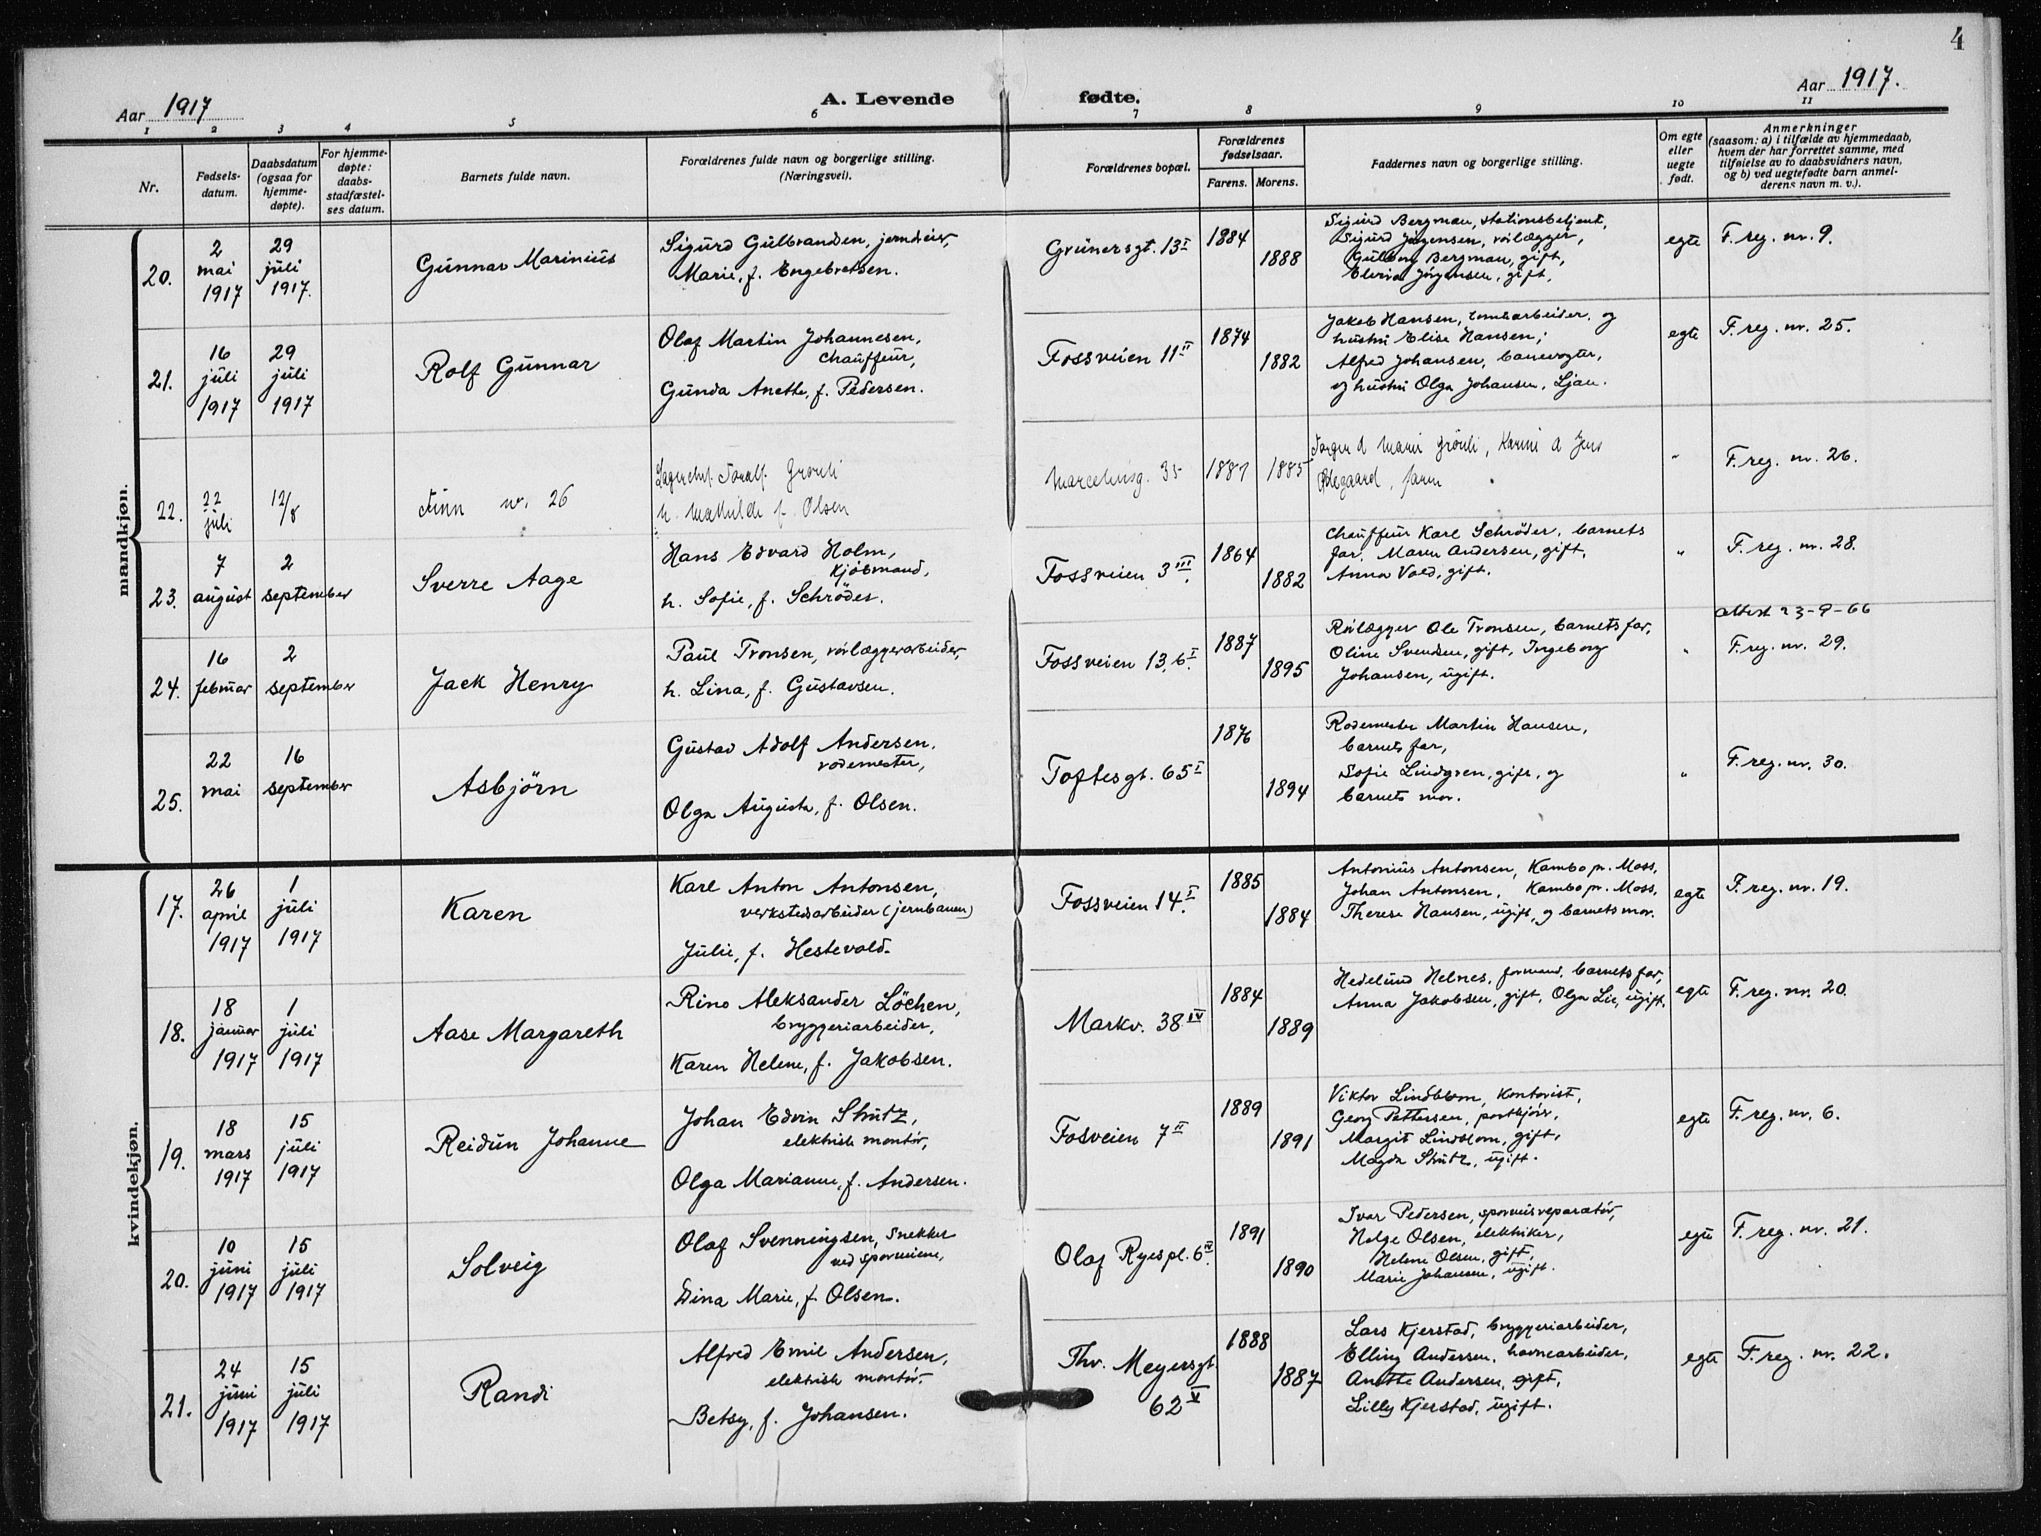 4
Aar 1917
A. Levende
fødte.
Aar 1917.
1 2 3 4 5 6 7 8 9 10 11
Nr.
Fødsels-
datum.
Daabsdatum
(ogsaa for
hjemme-
døpte).
For hjemme-
døpte:
daabs-
stadfæstel-
ses datum.
Barnets fulde navn.
Forældrenes fulde navn og borgerlige stilling.
(Næringsvei).
Forældrenes bopæl.
Forældrenes
fødselsaar.
Farens. Morens.
Faddernes navn og borgerlige stilling.
Om egte
eller
uegte
født.
Anmerkninger
(saasom: a) i tilfælde av hjemmedaab,
hvem der har forrettet samme, med
tilføielse av to daabsvidners navn,
og b) ved uegtefødte barn anmel-
derens navn m. v.).
mandkjøn.
20.
2
mai
1917
29
juli
1917.
Gunnar Marinius
Sigurd Gulbrandsen, jerndreier,
Marie, f. Engebretsen.
Grünersgt. 13 I
1884
1888
Sigurd Bergman, stationsbetjent,
Sigurd Jørgensen, rørlægger,
Gulborg Bergman, gift,
Elvira Jørgensen, gift,
egte
F. reg. nr. 9.
21.
16
juli
1917
29
juli
1917
Rolf Gunnar
Olaf Martin Johannesen,
chauffeur,
Gunda Anette, f. Pedersen.
Fossveien 11 II
1874
1882
Jakob Hansen, tomtearbeider, og
hustru Elise Hansen;
Alfred Johansen, banevogter,
og hustru Olga Johansen, Ljan.
egte
F. reg. nr. 25.
22.
22
juli
12/8
Finn nr. 26
Grønli
h. Mathilde f. Olsen
Marcelinsg. 35
1887
1885
Marie Grönli, Karine
Ødegaard, faren
"
F. reg. nr. 26.
23.
7
august
2
september
Sverre Aage
Hans Edvard Holm,
kjøbmand,
h. Sofie, f. Schrøder.
Fossveien 3 III.
1864
1882
Chauffeur Karl Schrøder, barnets
far, Maren Andersen, gift,
Anna Vold, gift.
"
F. reg. nr. 28.
24.
16
februar
2
september
Jack Henry
Paul Tronsen, rørlæggerarbeider,
h. Lina, f. Gustavsen.
Fossveien 13, 6 I.
1887
1895
Rørlægger Ole Tronsen, barnets far,
Oline Svendsen, gift, Ingeborg
Johansen, ugift.
"
Attest 23-9-66
F. reg. nr. 29.
25.
22
mai
16
september
Asbjörn
Gustav Adolf Andersen,
rodemester,
Olga Augusta, f. Olsen.
Toftesgt. 65 I
1876
1894
Rodemester Martin Hansen,
barnets far,
Sofie Lindgren, gift, og
barnets mor.
"
F. reg. nr. 30.
kvindekjøn.
17.
26
april
1917
1
juli
1917
Karen
Karl Anton Antonsen,
verkstedsarbeider (jernbanen)
Julie, f. Hestevold.
Fossveien 14 I.
1885
1884
Antonius Antonsen, Kambo pr. Moss,
Johan Antonsen, Kambo pr. Moss,
Therese Hansen, ugift, og barnets mor.
egte
F. reg. nr. 19.
18.
18
januar
1917
1
juli
1917
Aase Margareth
Rino Aleksander Löchen,
bryggeriarbeider,
Karen Helene, f. Jakobsen.
Markv. 38 IV
1884
1889
Hedelund Helnes, formand, barnets far,
Anna Jakobsen, gift, Olga Lie, ugift.
egte
F. reg. nr. 20.
19.
18
mars
1917
15
juli
1917
Reidun Johanne
Johan Edvin Shutz,
elektrisk montør,
Olga Marianne, f. Andersen.
Fosveien 7 II
1889
1891
Viktor Lindblom, kontorist,
Georg Pettersen, postkjører,
Margit Lindblom, gift,
Magda Shutz, ugift.
egte
F. reg. nr. 6.
20.
10
juni
1917
15
juli
1917
Solveig
Olaf Svenningsen, snekker
ved sporveiene,
Dina Marie, f. Olsen.
Olaf Ryespl. 6 IV.
1891
1890
Ivar Pedersen, sporveisreparatør,
Helge Olsen, elektriker,
Helene Olsen, gift,
Marie Johansen, ugift.
egte
F. reg. nr. 21.
21.
24
juni
1917
15
juli
1917
Randi
Alfred Emil Andersen,
elektrisk montør.
Betsy, f. Johansen.
Thv. Meyersgt.
62 V
1888
1887
Lars Kjerstad, bryggeriarbeider,
Elling Andersen, havnearbeider,
Anette Andersen, gift,
Lilly Kjerstad, ugift.
egte
F. reg. nr. 22.